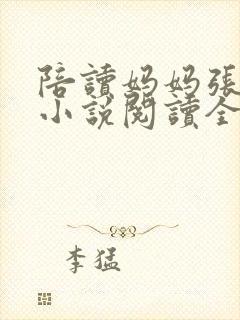 陪讀妈妈張
小說閱讀全
李猛